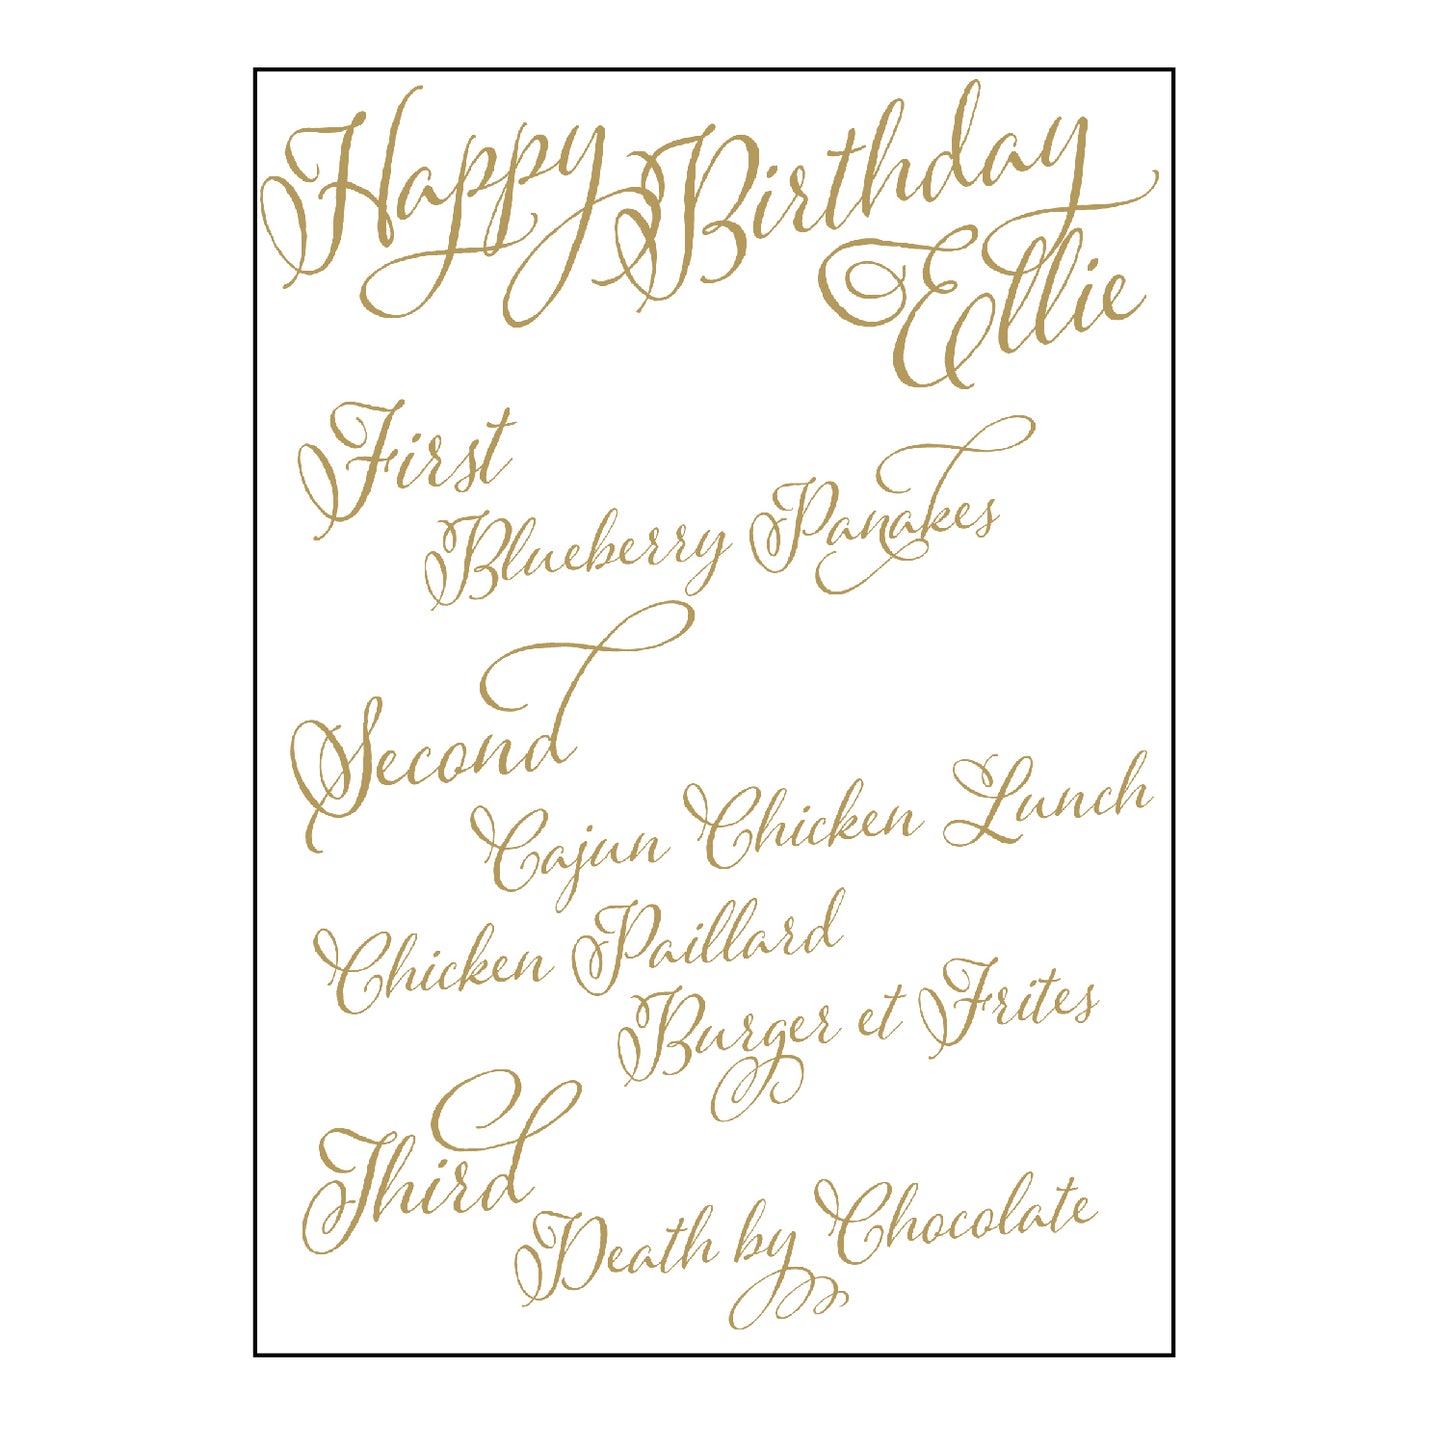 Happy Birthday
Ellie
First
Blueberry Panakes
Second
Cajun Chicken Lunch
Chicken Paillard
Burger et Frites
Third
Death by Chocolate